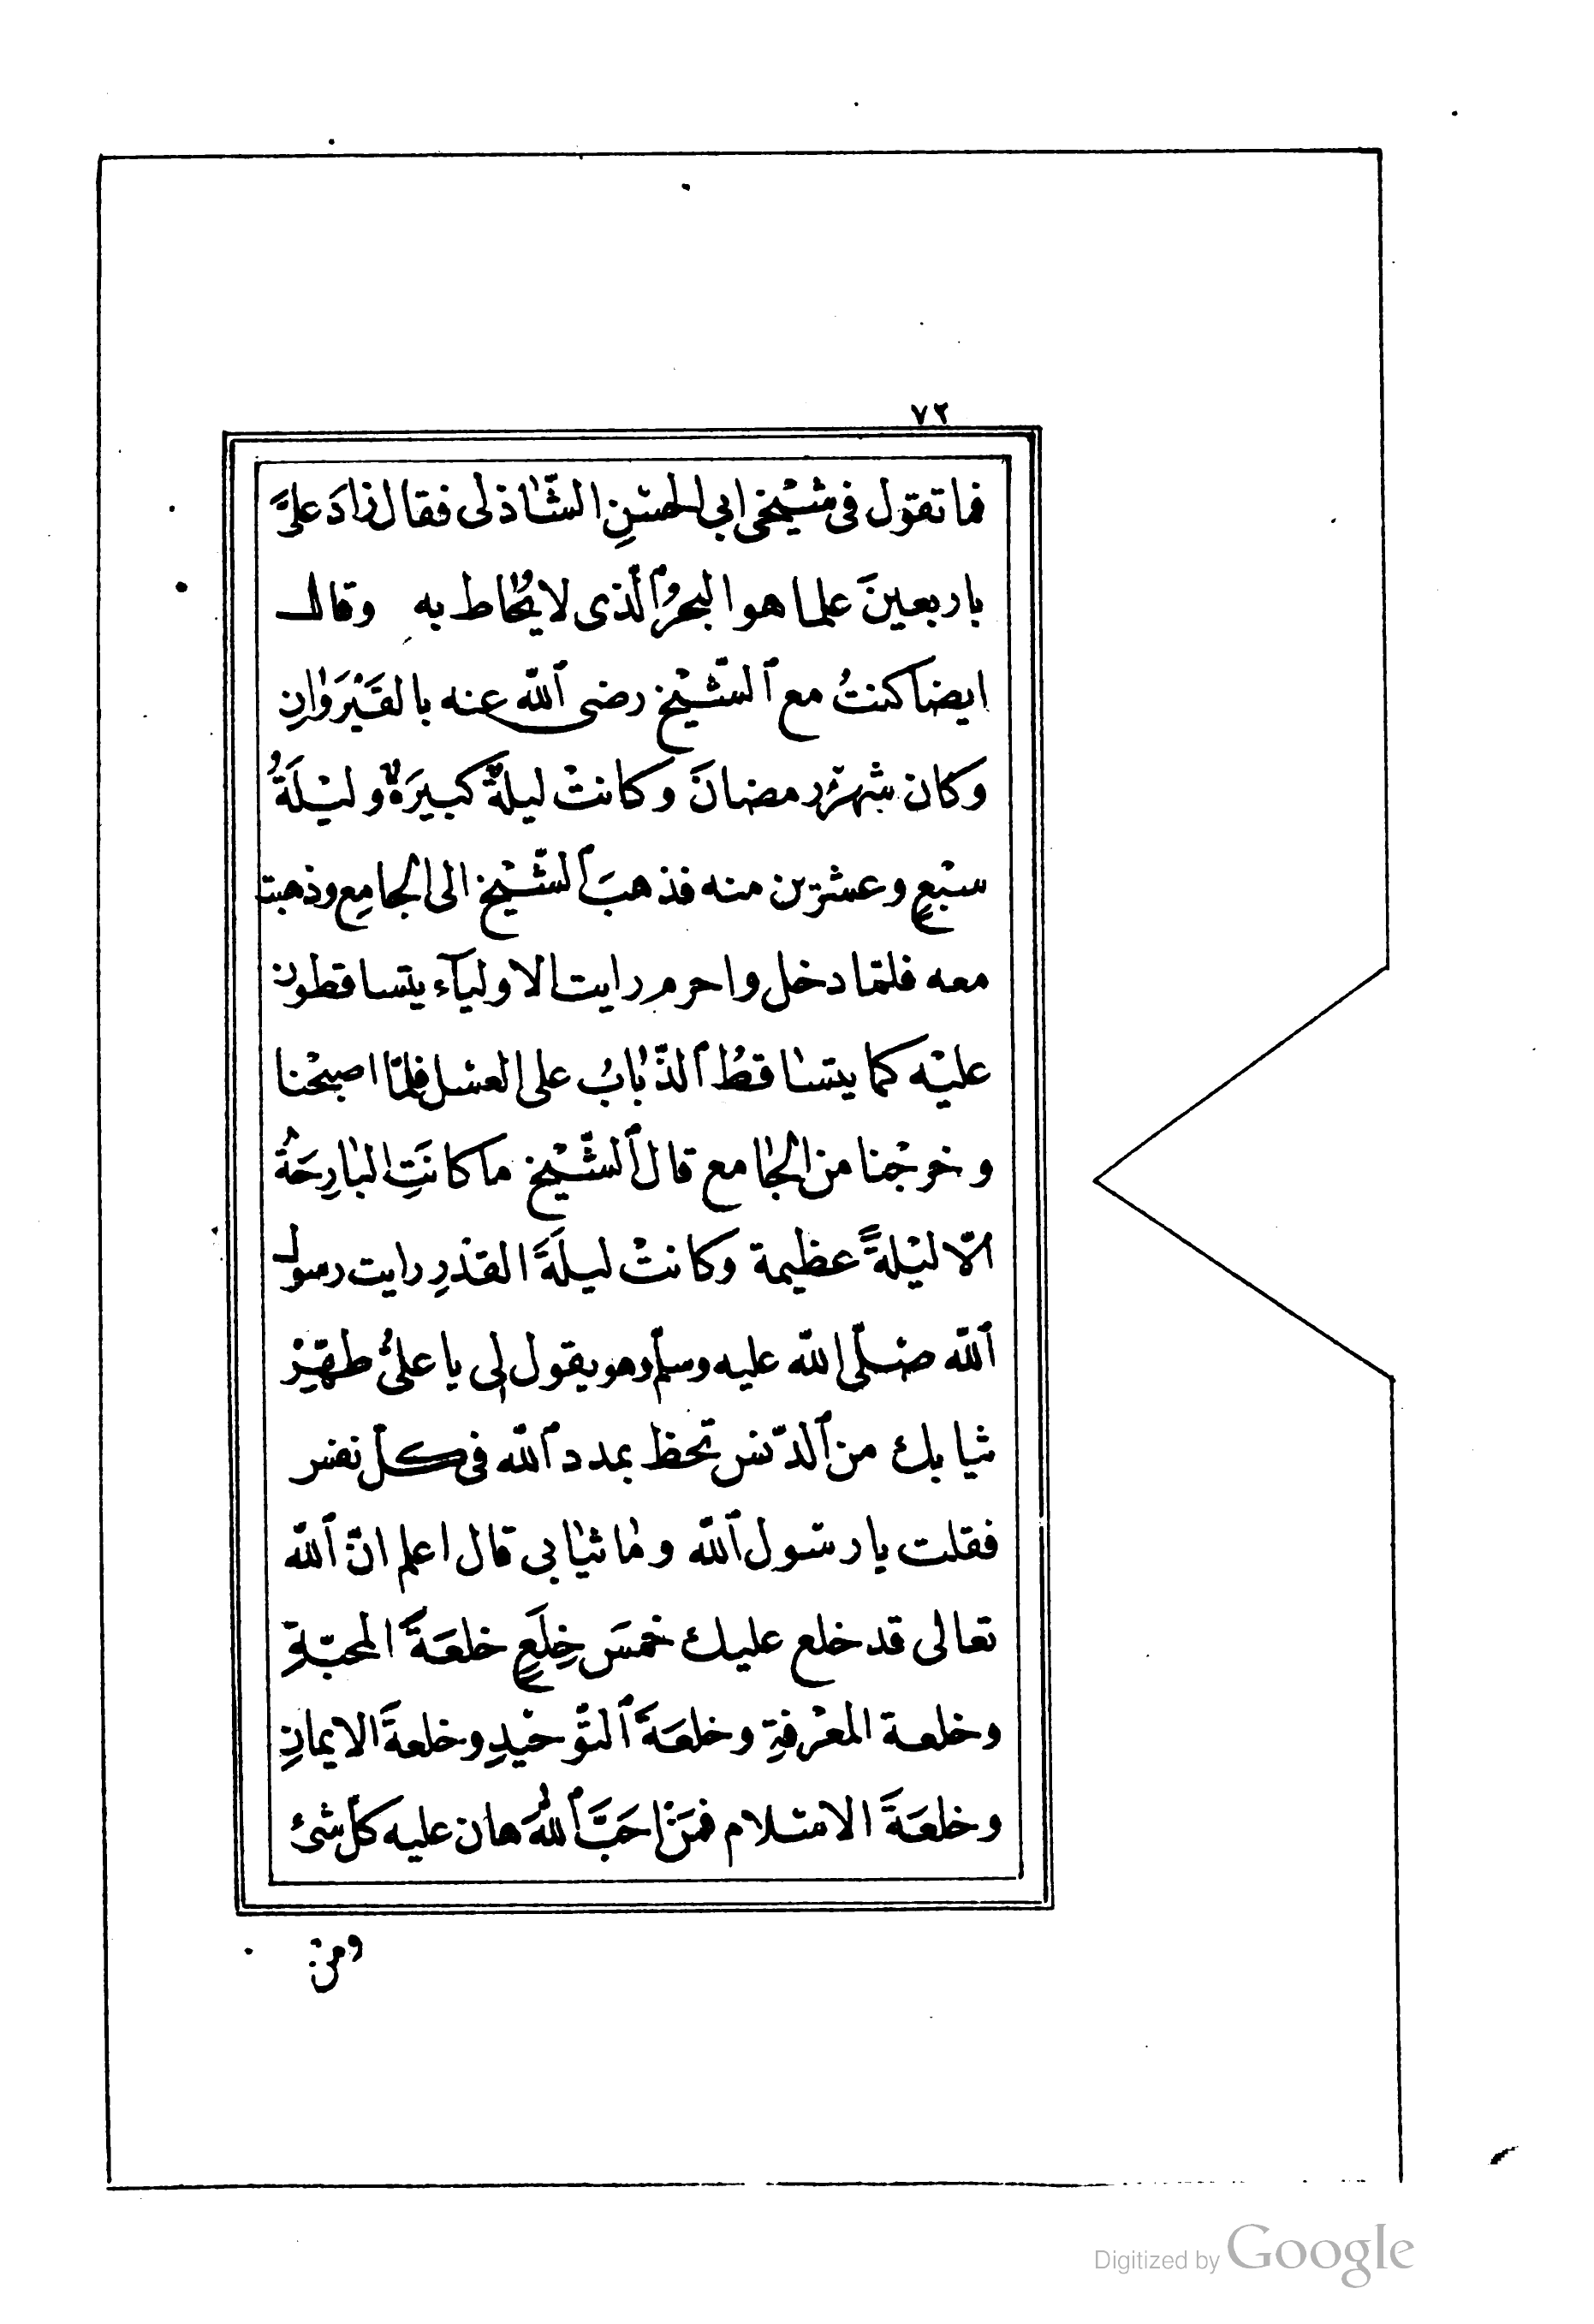 ٧٢
فما تقول فى شيْخى ابى الحسَنِ الشّاذلى فقال زادَ علىَّ
باربعينَ علما هو البحرُ ٱلّذى لا يُحاط به وقال
ايضا كنتُ مع ٱلشّيْخ رضى ٱللّه عنه بالقَيْرَوانِ
وكان شهرُ رمضانَ وكانتْ ليلةٌ كبيرَةٌ وليْلَةُ
سبْعٍ وعشرين منه فذهبَ ٱلشّيْخ الى الجامِع وذهبت
معه فلمّا دخل واحرم رايت الاوليآء يتساقطون
عليْه كما يتساقطُ ٱلذّبابُ على العسل فلمّا اصبحْنا
وخرجْنا من الجامع قال ٱلشّيْخ ما كانَتِ البارِحَةُ
الّا ليْلةً عظيمة وكانتْ ليلَةَ القدْرِ رايت رسول
ٱللّه صلّى اللّه عليه وسلّم وهو يقول لى يا علىُّ طهّرْ
ثيابك من ٱلدّنس تحظ بمدد ٱللّه فى كلّ نفس
فقلت يا رسول ٱللّه وما ثيابى قال اعلم انّ ٱللّه
تعالى قد خلع عليك خمسَ خِلَعٍ خلعَةَ المحبّةِ
وخلعة المعْرفةِ وخلعَةَ ٱلتّوْحيْدِ وخلعةَ الايمانِ
وخلعَةَ الاسلام فمَنْ احَبَّ ٱللّهَ هان عليه كلّ شئ
ومنْ
Digitized by Google